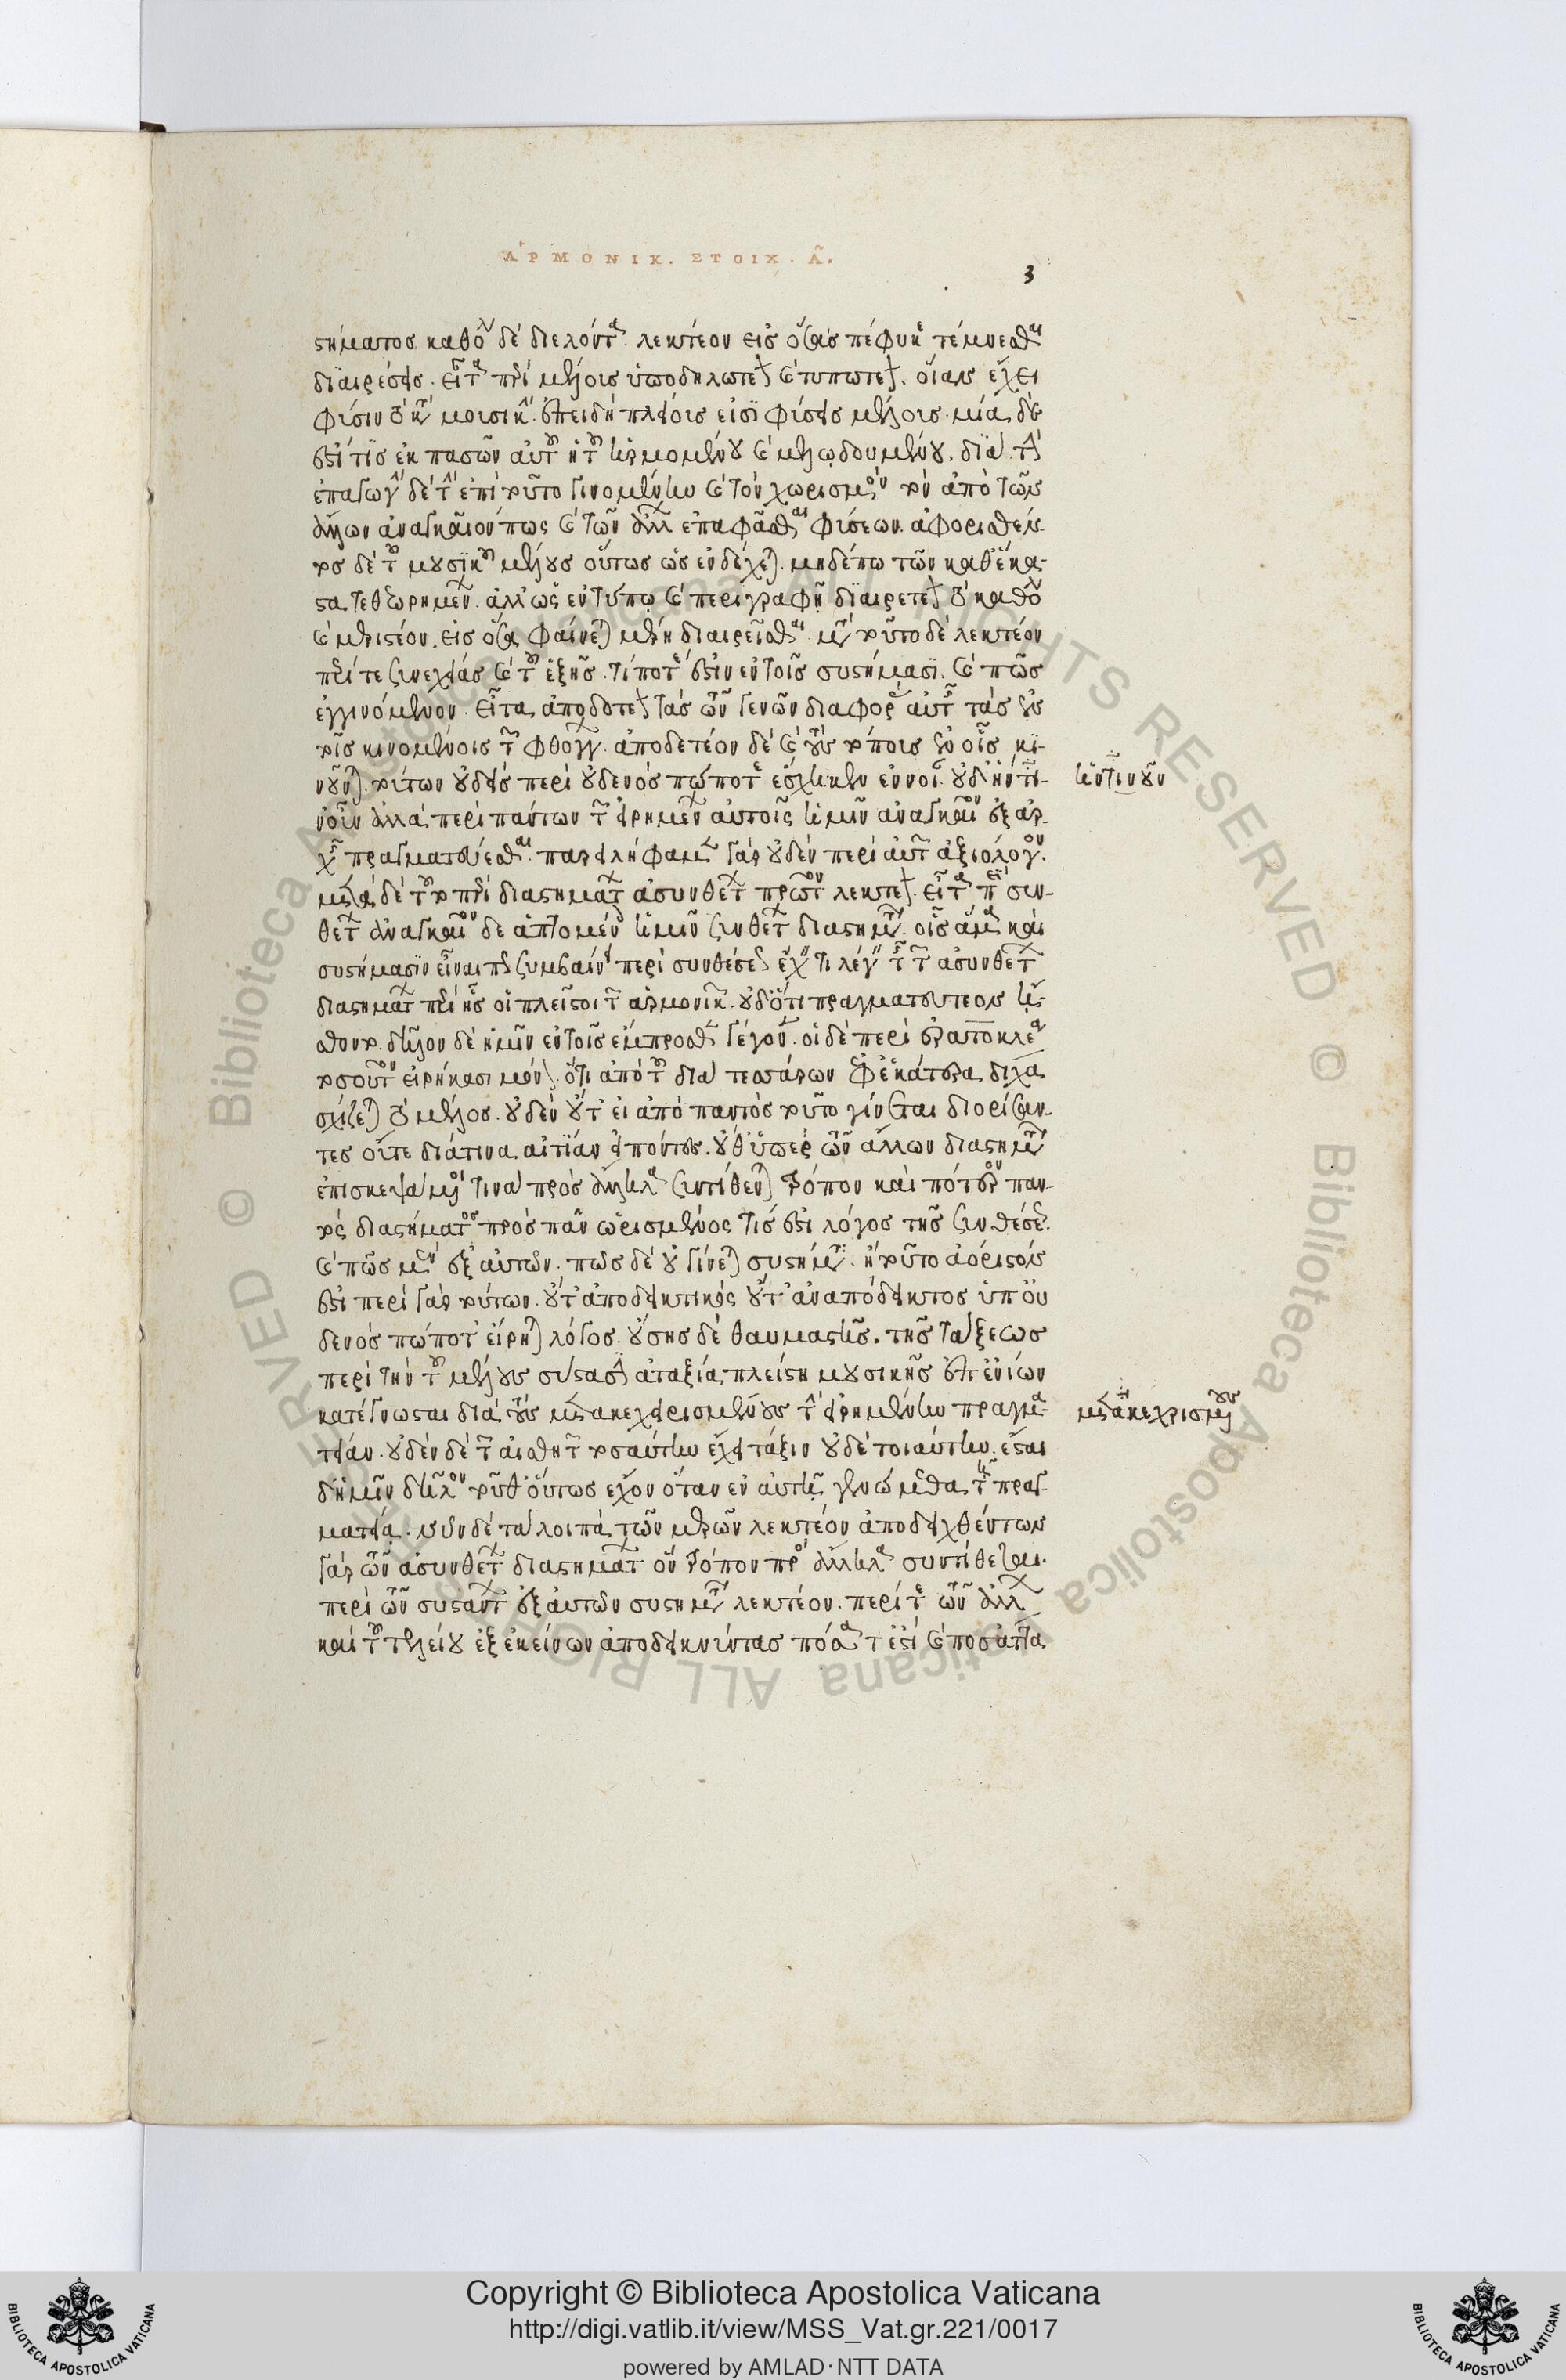 ἉΡΜΟΝΙΚ. ΣΤΟΙΧ. Α.
3
στήματος καθόλου δὲ διελόντα λεκτέον εἰς ὅσας πέφυκε τέμνεσθαι
διαιρέσεις. εἶτα περὶ μέλους ὑποδηλωτέον καὶ τυπωτέον. οἵαν ἔχει
φύσιν τὸ κατὰ μουσικήν. ἐπειδὴ πλείους εἰσὶ φύσεις μέλους. μία δὲ
ἐστί τις ἐκ πασῶν αὐτοῦ ἡ τοῦ ἡρμομένου καὶ μελῳδουμένου. διὰ τὴν
ἐπαγωγὴν δὲ τὴν ἐπὶ τοῦτο γινομένην καὶ τὸν χωρισμὸν τὸν ἀπὸ τῶν
ἄλλων ἀναγκαῖόν πως καὶ τῶν ἄλλων ἐπαφᾶσθαι φύσεων. ἀφορισθέν-
τος δὲ τοῦ μουσικοῦ μέλους οὕτως ὡς ἐνδέχεται. μηδέπω τῶν καθ' ἕκα-
στα τεθεωρημένων. ἀλλ' ὡς ἐν τύπῳ καὶ περιγραφῇ διαιρετέον τὸ καθόλου
καὶ μεριστέον. εἰς ὅσα φαίνεται μέρη διαιρεῖσθαι. μετὰ τοῦτο δὲ λεκτέον
περί τε συνεχείας καὶ τοῦ ἑξῆς. τί ποτέ ἐστιν ἐν τοῖς συστήμασι. καὶ πῶς
ἐγγινόμενον. εἶτα ἀποδοτέον τὰς τῶν γενῶν διαφορὰς αὐτὰς τὰς ἐν
τοῖς κινουμένοις τῶν φθόγγων. ἀποδετέον δὲ καὶ τοὺς τόπους ἐν οἷς κι-
νοῦνται. τούτων οὐδεὶς περὶ οὐδενὸς πώποτε ἔσχηκεν ἔννοιαν. οὐδ' ἡντι-
νοῦν ἀλλὰ περὶ πάντων τῶν εἰρημένων αὐτοῖς ἡμῖν ἀναγκαῖον ἐξ ἀρ-
χῆς πραγματεύεσθαι. παρειλήφαμεν γὰρ οὐδὲν περὶ αὐτῶν ἀξιόλογον.
μετὰ δὲ τοῦτο περὶ διαστημάτων ἀσυνθέτων πρῶτον λεκτέον. εἶτα περὶ συν-
θέτων ἀναγκαῖον δὲ ἁπτομένοις ἡμῖν συνθέτων διαστημάτων. οἷς ἅμα καὶ
συστήμασιν εἶναί πως συμβαίνει περὶ συνθέσεως ἔχειν τι λέγειν τῆς τῶν ἀσυνθέτων
διαστημάτων περὶ ἧς οἱ πλεῖστοι τῶν ἁρμονικῶν. οὐδ' ὅτι πραγματευτέον ᾔσ-
θοντο. δῆλον δὲ ἡμῖν ἐν τοῖς ἔμπροσθεν γέγονεν. οἱ δὲ περὶ Ἐρατοκλέα
τοσοῦτον εἰρήκασι μόνον. ὅτι ἀπὸ τοῦ διὰ τεσσάρων ἐφ' ἑκάτερα δίχα
σχίζεται τὸ μέλος. οὐδὲν οὔτ' εἰ ἀπὸ παντὸς τοῦτο γίνεται διορίσαν-
τες οὔτε διὰ τίνα αἰτίαν εἰπόντες. οὐθ' ὑπὲρ τῶν ἄλλων διαστημάτων
ἐπισκεψάμενοι τίνα πρὸς ἄλληλα συντίθενται τρόπον καὶ πότερον παν-
τὸς διαστήματος πρὸς πᾶν ὡρισμένος τίς ἐστι λόγος τῆς συνθέσεως.
καὶ πῶς μὲν ἐξ αὐτῶν. πῶς δὲ οὐ γίνεται συστήματα. ἢ τοῦτο ἀόριστόν
ἐστι περὶ γὰρ τούτων. οὔτ' ἀποδεικτικὸς οὔτ' ἀναπόδεικτος ὑπ' οὐ
δενὸς πώποτ' εἴρηται λόγος. οὔσης δὲ θαυμαστῆς. τῆς τάξεως
περὶ τὴν τοῦ μέλους σύστασιν ἀταξία πλείστη μουσικῆς ὑπ' ἐνίων
κατέγνωσται διὰ τοὺς μετακεχειρισμένους τὴν εἰρημένην πραγμα-
τείαν. οὐδὲν δὲ τῶν αἰσθητῶν τοσαύτην ἔχει τάξιν οὐδὲ τοιαύτην. ἔσται
δ' ἡμῖν δῆλον τοῦθ' οὕτως ἔχον ὅταν ἐν αὐτῇ γενώμεθα τῇ πραγ-
ματείᾳ. νῦν δὲ τὰ λοιπὰ τῶν μερῶν λεκτέον ἀποδειχθέντων
γὰρ τῶν ἀσυνθέτων διαστημάτων ὃν τρόπον πρὸς ἄλληλα συντίθεται.
περὶ τῶν συστάντων ἐξ αὐτῶν συστημάτων λεκτέον. περί τε τῶν ἄλλων
καὶ τοῦ τελείου ἐξ ἐκείνων ἀποδεικνύντας πόσα τ' ἐστὶ καὶ ποῖ' ἄττα
ἡντινοῦν
μετακεχειρισμένους
Copyright © Biblioteca Apostolica Vaticana
http://digi.vatlib.it/view/MSS_Vat.gr.221/0017
powered by AMLAD·NTT DATA